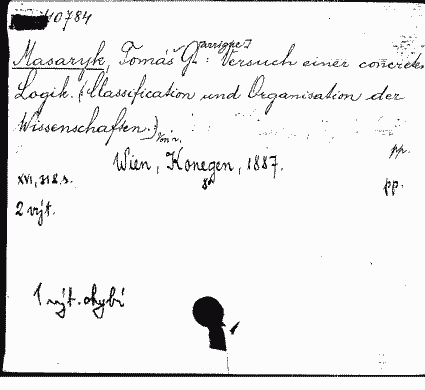 40784
Masaryk, Tomáš G[arrigue]: Versuch einer concreten
Logik. (Classification und Organisation der
Wissenschaften.)
Wien, Konegen, 1887.
pp.
XVI, 318 s. 8°
pp.
2 výt.
1 výt. chybí